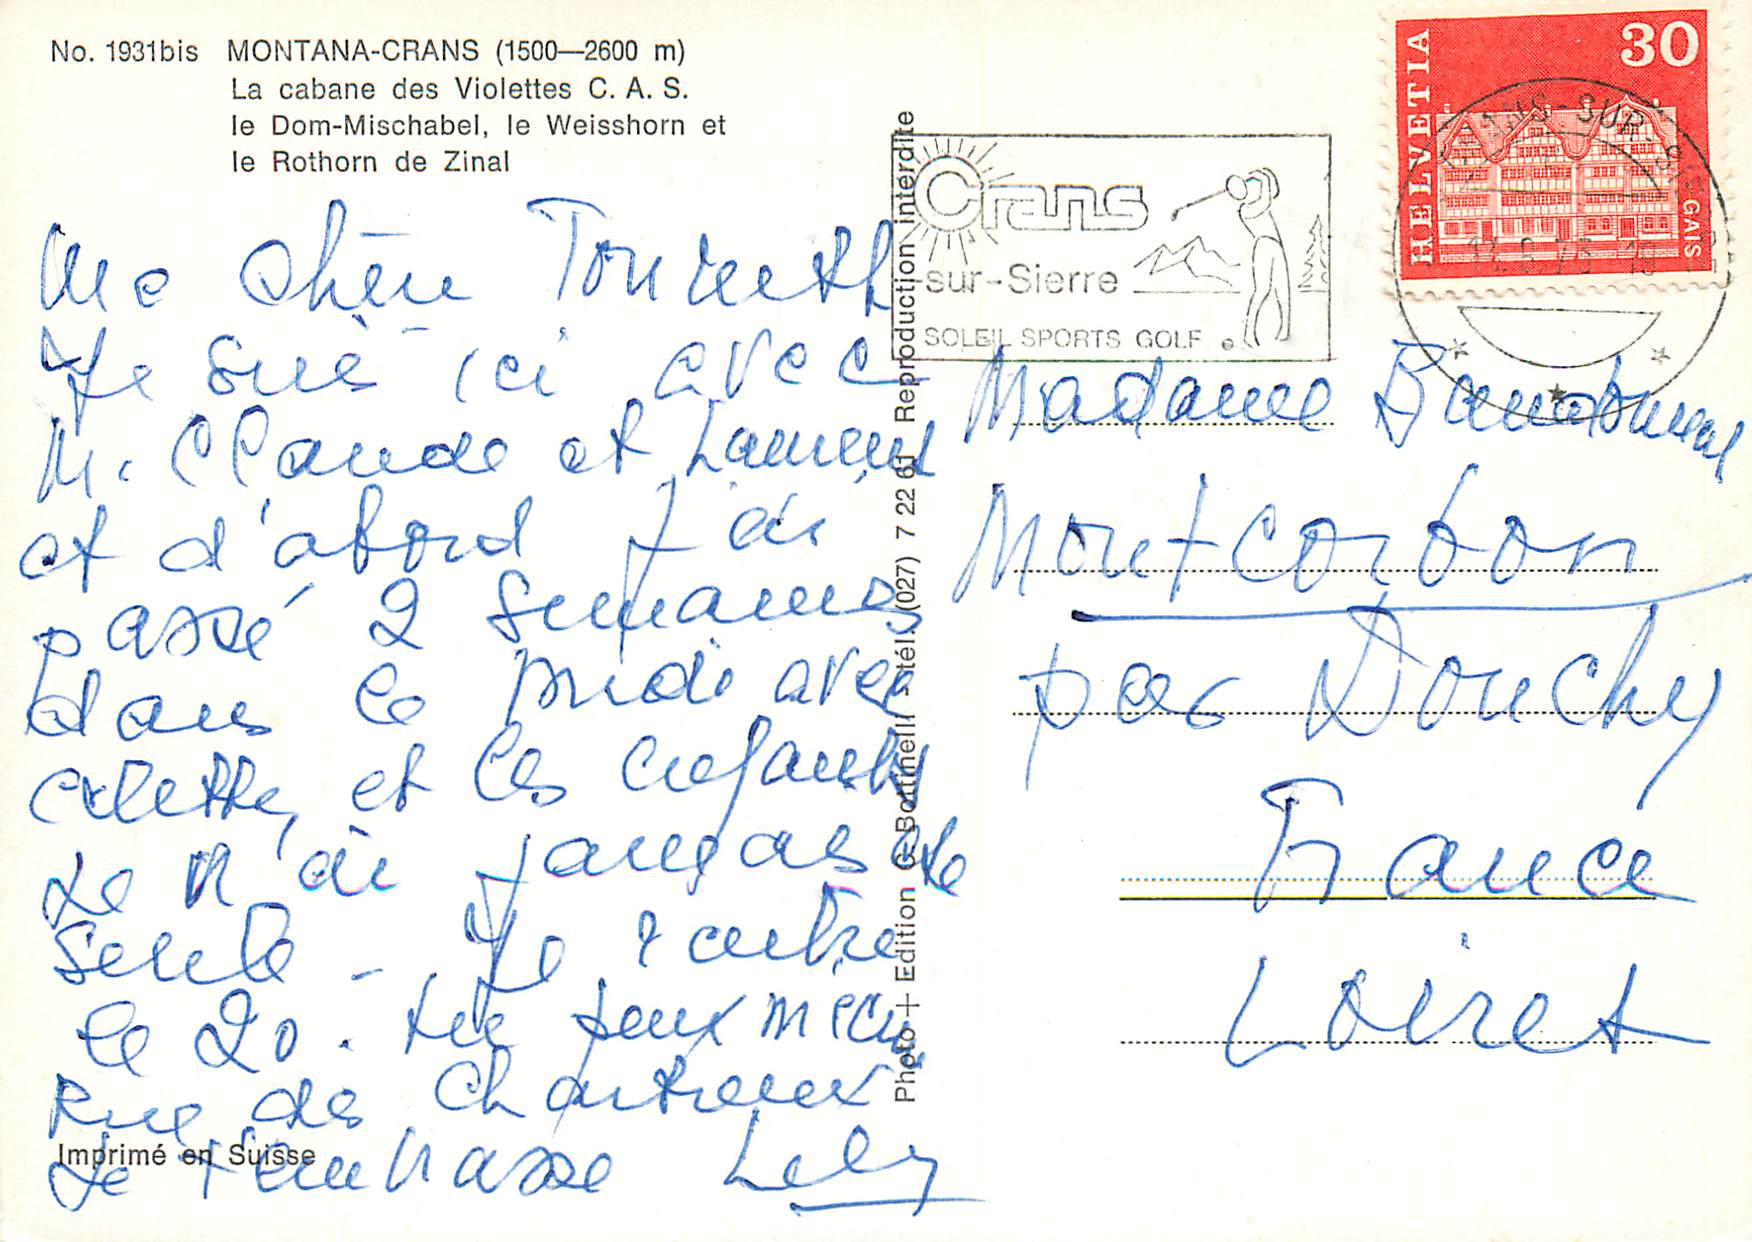 No. 1931bis MONTANA-CRANS (1500—2600 m)
La cabane des Violettes C. A. S.
le Dom-Mischabel, le Weisshorn et
le Rothorn de Zinal
Ma chère
Je suis ici avec
M. Claude et Laurent
et d'abord j'ai
passé 2 semaines
dans le midi avec
Colette, et les enfants
Je n'ai
Je rentre
le 20. tu peux
Rue des Chartreux
Je t'embrasse Lely
Imprimé en Suisse
Photo + Edition G. Bottinelli - tél. (027) 7 22 61 Reproduction interdite
Crans
sur-Sierre
SOLEIL SPORTS GOLF
HELVETIA
30
GAIS
CRANS-SUR-SIERRE
Madame
Montcorbon
par Douchy
France
Loiret